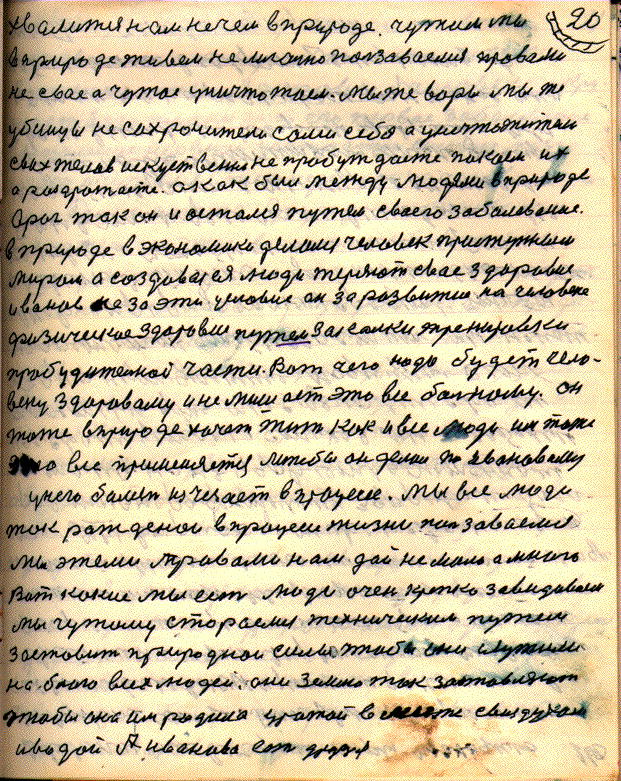 20
хвалится нам нечем в природе. чужим мы
в природе живем не законно ползаваемся правами
не свое а чужое уничтожаем. Мы же воры мы же
убийцы не сохронители сами себя а уничтожители
своих телов искуственно не пробуждаете покоем их
а раздрожаете. а как был между людями в природе
враг так он и остался путем своего заболевание.
в природе в экономики делался человек приступным
миром а создовается люди теряют свае здоровие
иванов не за эти условие он за развитие на человеке
физическое здоровие путем закалки тренировки
пробудителной части. Вот чего надо будет чело-
веку здороваму и не мишает это все болному. он
тоже в природе хочит жит как и все люди им тоже
это все применяется лиш бы он делал по ивановаму
у него болезн изчезает в процессе. Мы все люди
так рожденои в процессе жизни ползаваемся
мы этеми правами нам дай не мало а много
Вот какие мы ест люди очен крепко завидаваем
мы чужому стораемся техническим путем
заставит природнои силы чтобы они служили
на благо всех людей. они Землю так заставляют
чтобы она им родила урожай в месте с воздухом
и водой А иванова ест